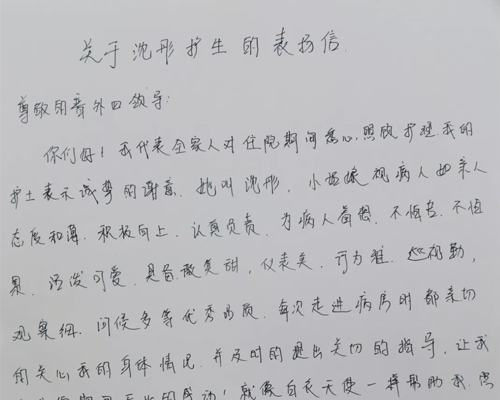 关于沈彤护生的表扬信
尊敬的普外四领导：
你们好！我代表全家人对住院期间悉心照顾护理我的
护士表示诚挚的谢意。她叫沈彤，小姑娘视病人如亲人
态度和蔼，积极向上，认真负责，为病人着想，不怕苦，不怕
累，活泼可爱，具备微笑甜，仪表美，行为雅，巡视勤，
观察细，问候多等优秀品质，每次走进病房时都亲切
的关心我的身体情况，并及时的提出关切的指导，让我
的感动！就像白衣天使一样帮助我